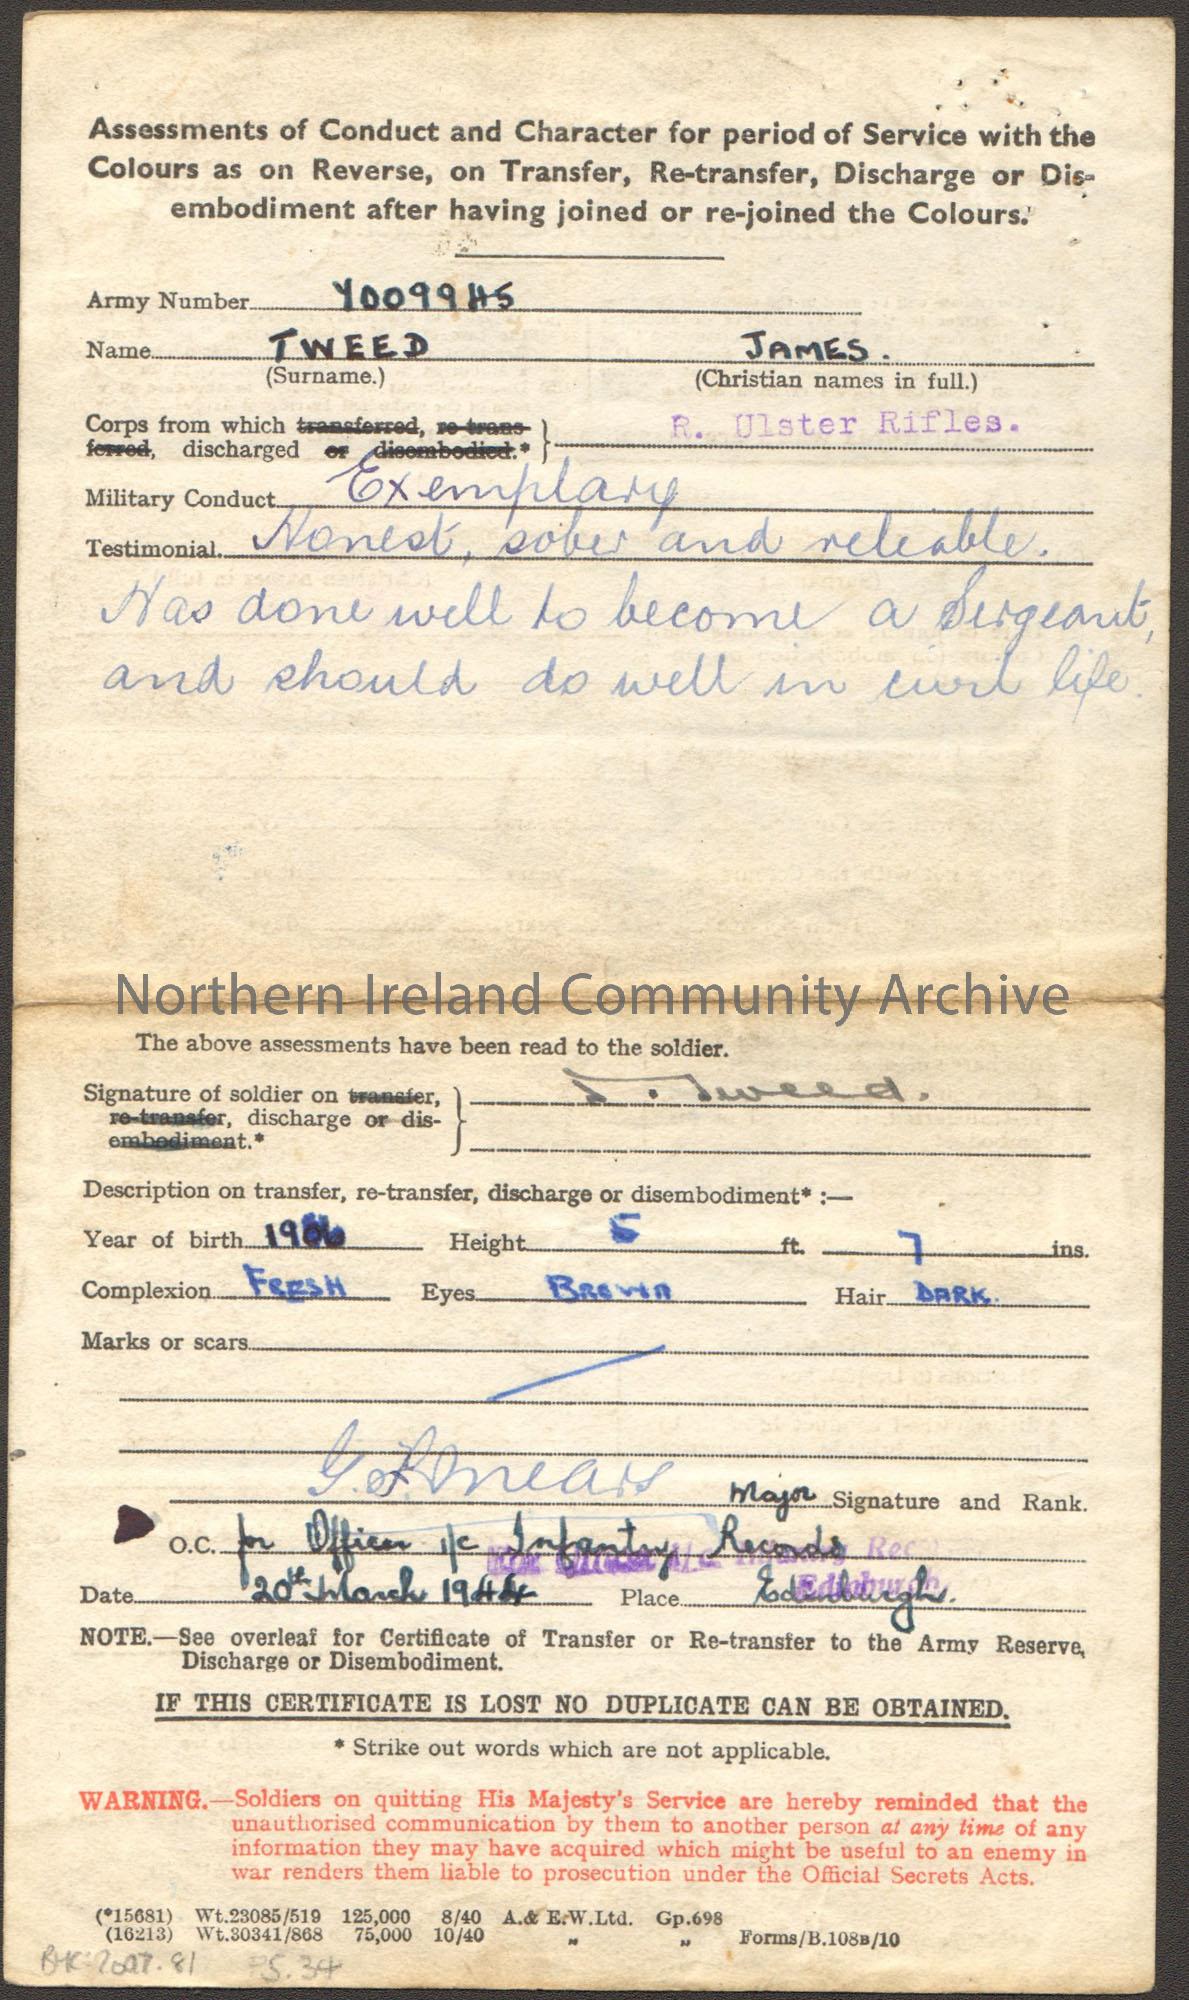 Assessments of Conduct and Character for period of Service with the
Colours as on Reverse, on Transfer, Re-transfer, Discharge or Dis-
embodiment after having joined or re-joined the Colours.
Army Number 7009945
Name TWEED JAMES.
(Surname.) (Christian names in full.)
Corps from which transferred, re-trans-
ferred, discharged or disembodied.* R. Ulster Rifles.
Military Conduct Exemplary
Testimonial. Honest, sober and reliable.
Has done well to become a Sergeant,
and should do well in civil life.
Northern Ireland Community Archive
The above assessments have been read to the soldier.
Signature of soldier on transfer, J. Tweed.
re-transfer, discharge or dis-
embodiment.*
Description on transfer, re-transfer, discharge or disembodiment* :—
Year of birth 1906 Height 5 ft. 7 ins.
Complexion FRESH Eyes BROWN Hair DARK.
Marks or scars
Major Signature and Rank.
O.C. for Officer i/c Infantry Records
Date 20th March 1944 Place Edinburgh.
NOTE.—See overleaf for Certificate of Transfer or Re-transfer to the Army Reserve,
Discharge or Disembodiment.
IF THIS CERTIFICATE IS LOST NO DUPLICATE CAN BE OBTAINED.
* Strike out words which are not applicable.
WARNING.—Soldiers on quitting His Majesty's Service are hereby reminded that the
unauthorised communication by them to another person at any time of any
information they may have acquired which might be useful to an enemy in
war renders them liable to prosecution under the Official Secrets Acts.
(*15681) Wt.23085/519 125,000 8/40 A.& E.W.Ltd. Gp.698
(16213) Wt.30341/868 75,000 10/40 " " Forms/B.108B/10